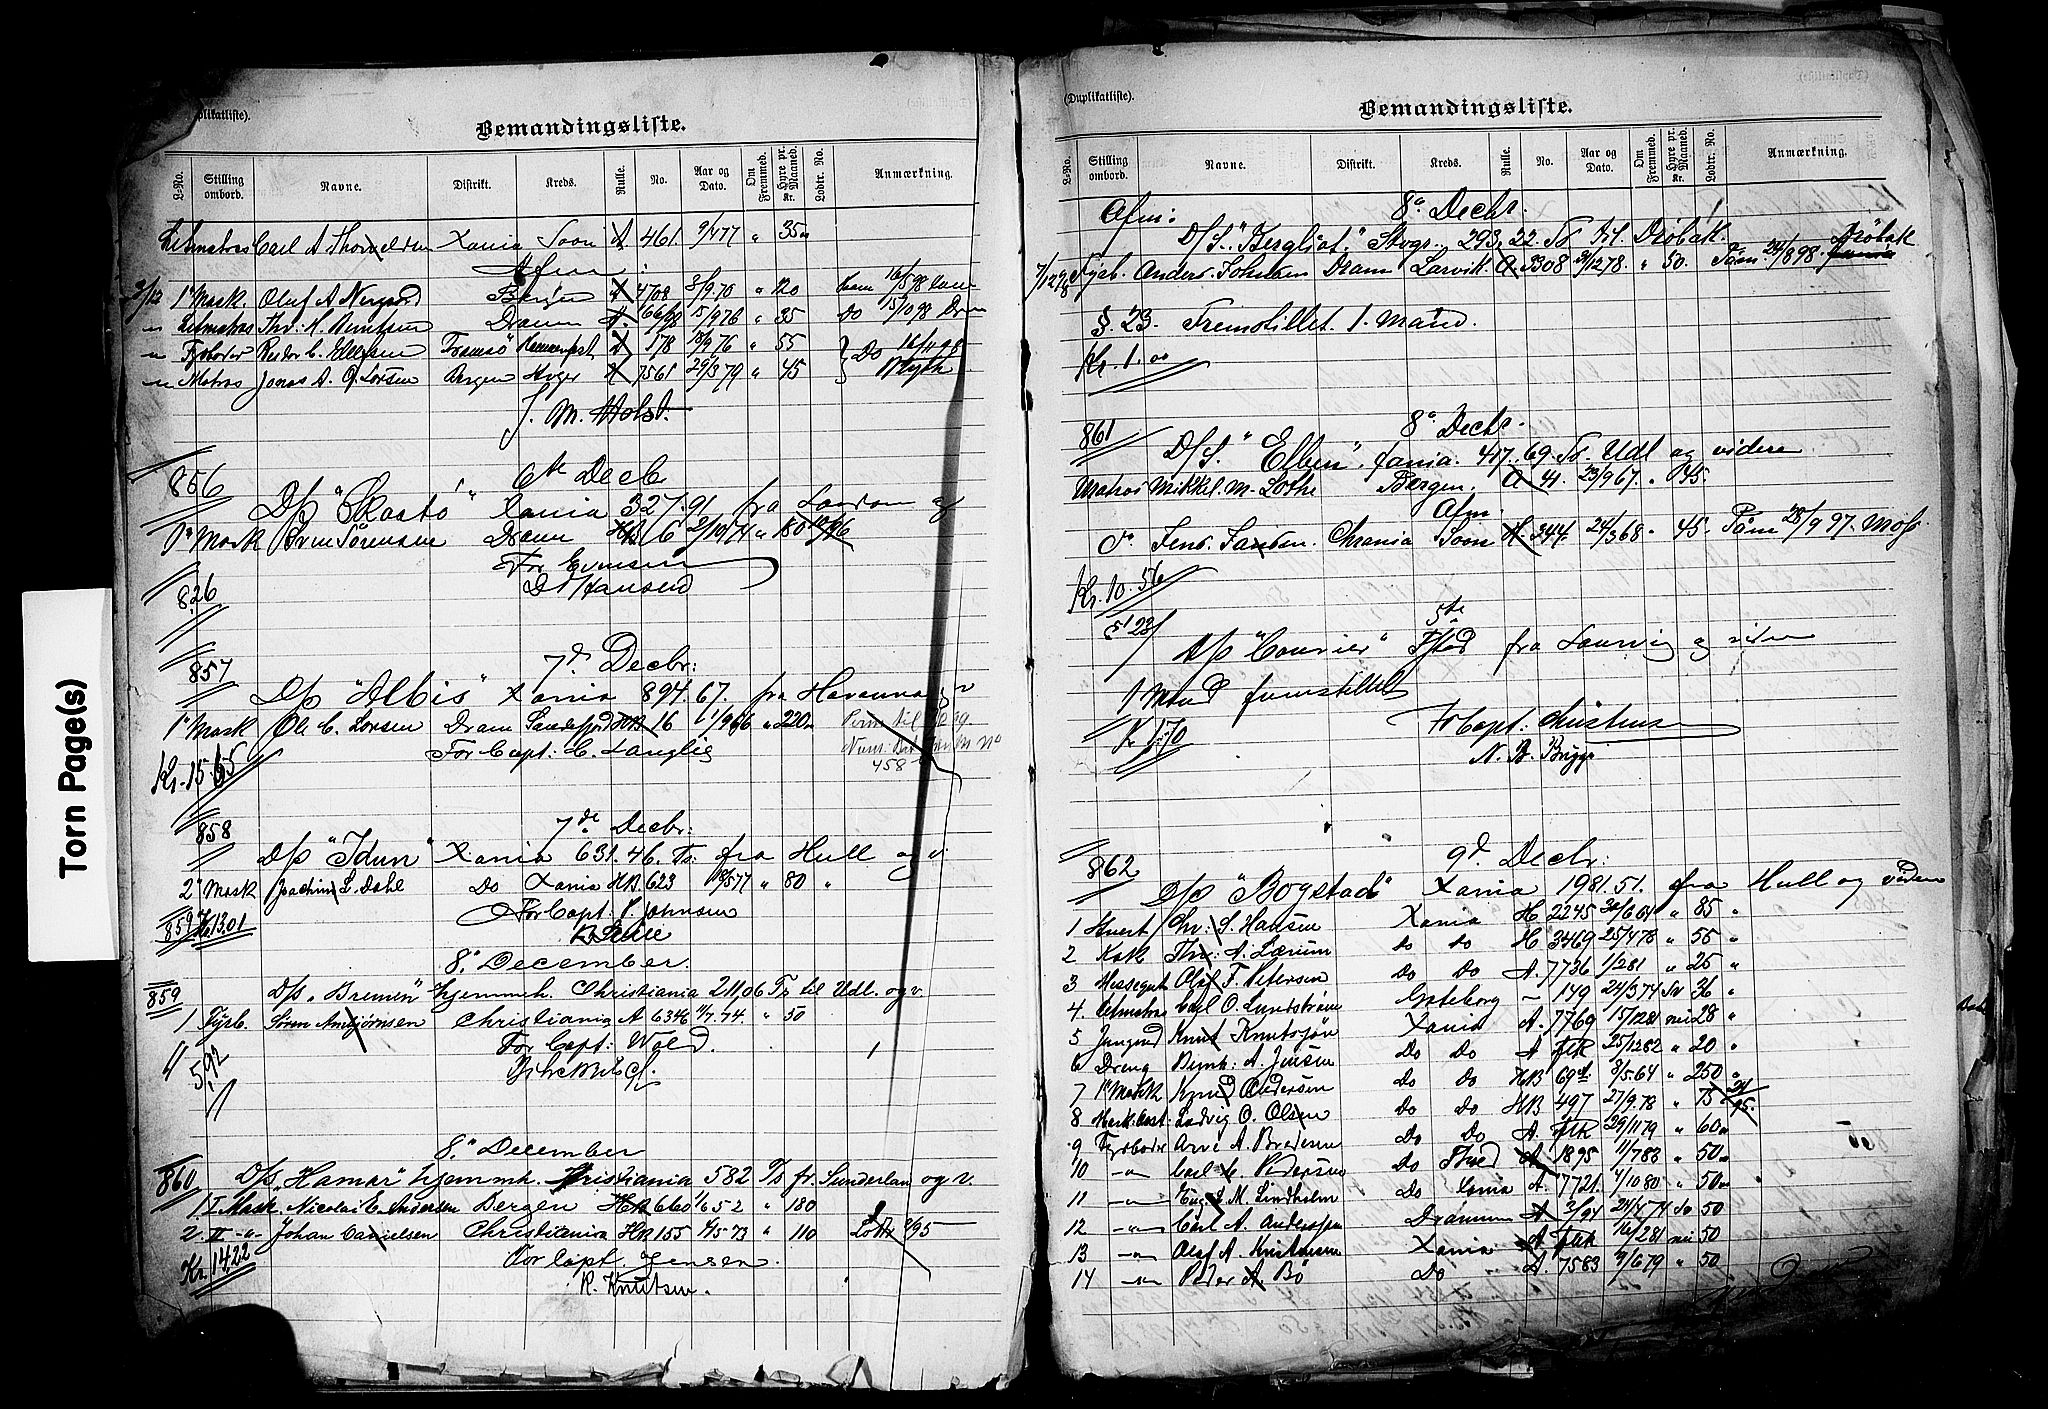 Torn Page(s)
plikatliste).
Bemandingsliste.
L-No. Stilling ombord. Navne. Distrikt. Kreds. Rulle. No. Aar og Dato. Om Fremmed. Hyre pr. Maaned. Kr. Lodtr. No. Anmærkning.
Letmatros Carl A Xania Soon A 461 9/4 77 " 35
Afm:
1ste Mask. Oluf A Bergen 4708 3/9.70 " 120
" Letmatros Thv. M. Berntsen Dramm A. 15/9 76 " 35 do 15/10 98
" Fyrbøder Peder C. Tromsö Hammerfest 578 18/9 76 " 55 Do 16/11 98
" Matros Jonas A. Larsen Bergen 7561 29/3 79 " 45
J. M. Holst.
856 6te Decb
D/S "Skaatö" Xania 327.91 fra London og
1e Mask Sven Sörensen Dramm HB 6 2/10 74 " 180
For Evensen
D Hansen
826
857 7d Decbr:
D/S "Albis" Xania 894.67. fra Havanna
1e Mask Ole C. Larsen Dram Sandefjord HB 16 1/9 66 " 220
For Capt: C. Langlie 458
Kr. 15.65
858 7de Decbr:
D/S "Idun" Xania 631.46. Ts. fra Hull og v.
2e Mask Joachim L. Dahl Do Xania HB 623 18/5 77 " 80 "
859 Kr 13.01 For Capt. P. Johnsen
8de December.
859 D/S "Bremen" hjemmeh. Christiania 211,06 Ts til Udl. og v.
1 Fyrb. Sören Ambjörnsen Christiania A 6346 11/7.74. " 50
For Capt: Wold.
5,92
8de December
860 D/S "Hamar" hjemmh. Kristiania 582 Ts fr. Sunderlan og v.
1. I Mask. Nicolai E. Andersen Bergen HB 660 1/6 52 " 180
2. II -"- Johan Danielsen Christiania HB 155 4/5-73 " 110
Kr. 14.22 For Capt. Jensen.
K. Knutsen.
(Duplikatliste).
Bemandingsliste.
L-No. Stilling ombord. Navne. Distrikt. Kreds. Rulle. No. Aar og Dato. Om Fremmed. Hyre pr. Maaned. Kr. Lodtr. No. Anmærkning.
Afm: 8de Decbr.
D/S. "Bergliot." 293,22 Ts Dröbak.
7/12 98 Fyrb. Anders Johnsen Dram Larvik A. 3308 31/12 78. " 50. Paam 24/8 98. Dröbak
§. 23. Fremstillet. 1. Mand.
Kr. 1.00
861 8de Decbr.
D/S. "Elben". Xania. 417.69 Ts. Udl og videre
Matros Mikkel. M. Lothe Bergen. A 41 23/9 67. " 45.
Afm.
do Jens. Chrania Soon A. 344 24/3 68 " 45. Paam 28/9 97. Moss
Kr. 10.56
§ 23 5te
D/S "Courier" Fstad fra Laurvig og viden
1 Mand fremstillet
Kr 1.70 For Capt. Christensen
N. B. Brigg
862 9d Decbr:
D/S "Bogstad" Xania 1981.51. fra Hull og viden
1 Stuert Chr: S. Hansen Xania H 2245 30/6 61 " 85 "
2 Kok Thv: A. Lærum do do H 3469 25/4 78 " 55 "
3 Messegut Olaf F. Petersen Do Do A. 7736 1/2 81 " 25 "
4. Letmatros Carl O. Lundström Göteborg - 149 24/3 74 Sv 36 "
5 Jungmd Knut Knutssön Xania A. 7769 15/12 81 nei 28 "
6 Dreng Bernh: A. Jensen Do Do A ftk 25/12 82 " 20 "
7 1e Mask Knud Andersen Do Do HB 69 8/5.64 " 250 "
8 Mask.asst. Ludvig O. Olsen Do Do HB 497 27/9.78 " 75
9 Fyrbøder Arve A. Bredesen Do Do A. ftk 29/11 79 " 60 "
10 -"- Carl Pedersen Do A 1895 11/7 83 " 50 "
11 -"- Aug. M. Lindholm Do Xania A 7721. 4/10 80 " 50 "
12 -"- Carl A. Anderssen Drammen A 2/94 24/4 74 Sv 50
13 -"- Olaf A. Kristensen Xania A ftk 16/2 81 nei 50
14 -"- Peder A. Bö Do A. 7583 9/6 79 " 50